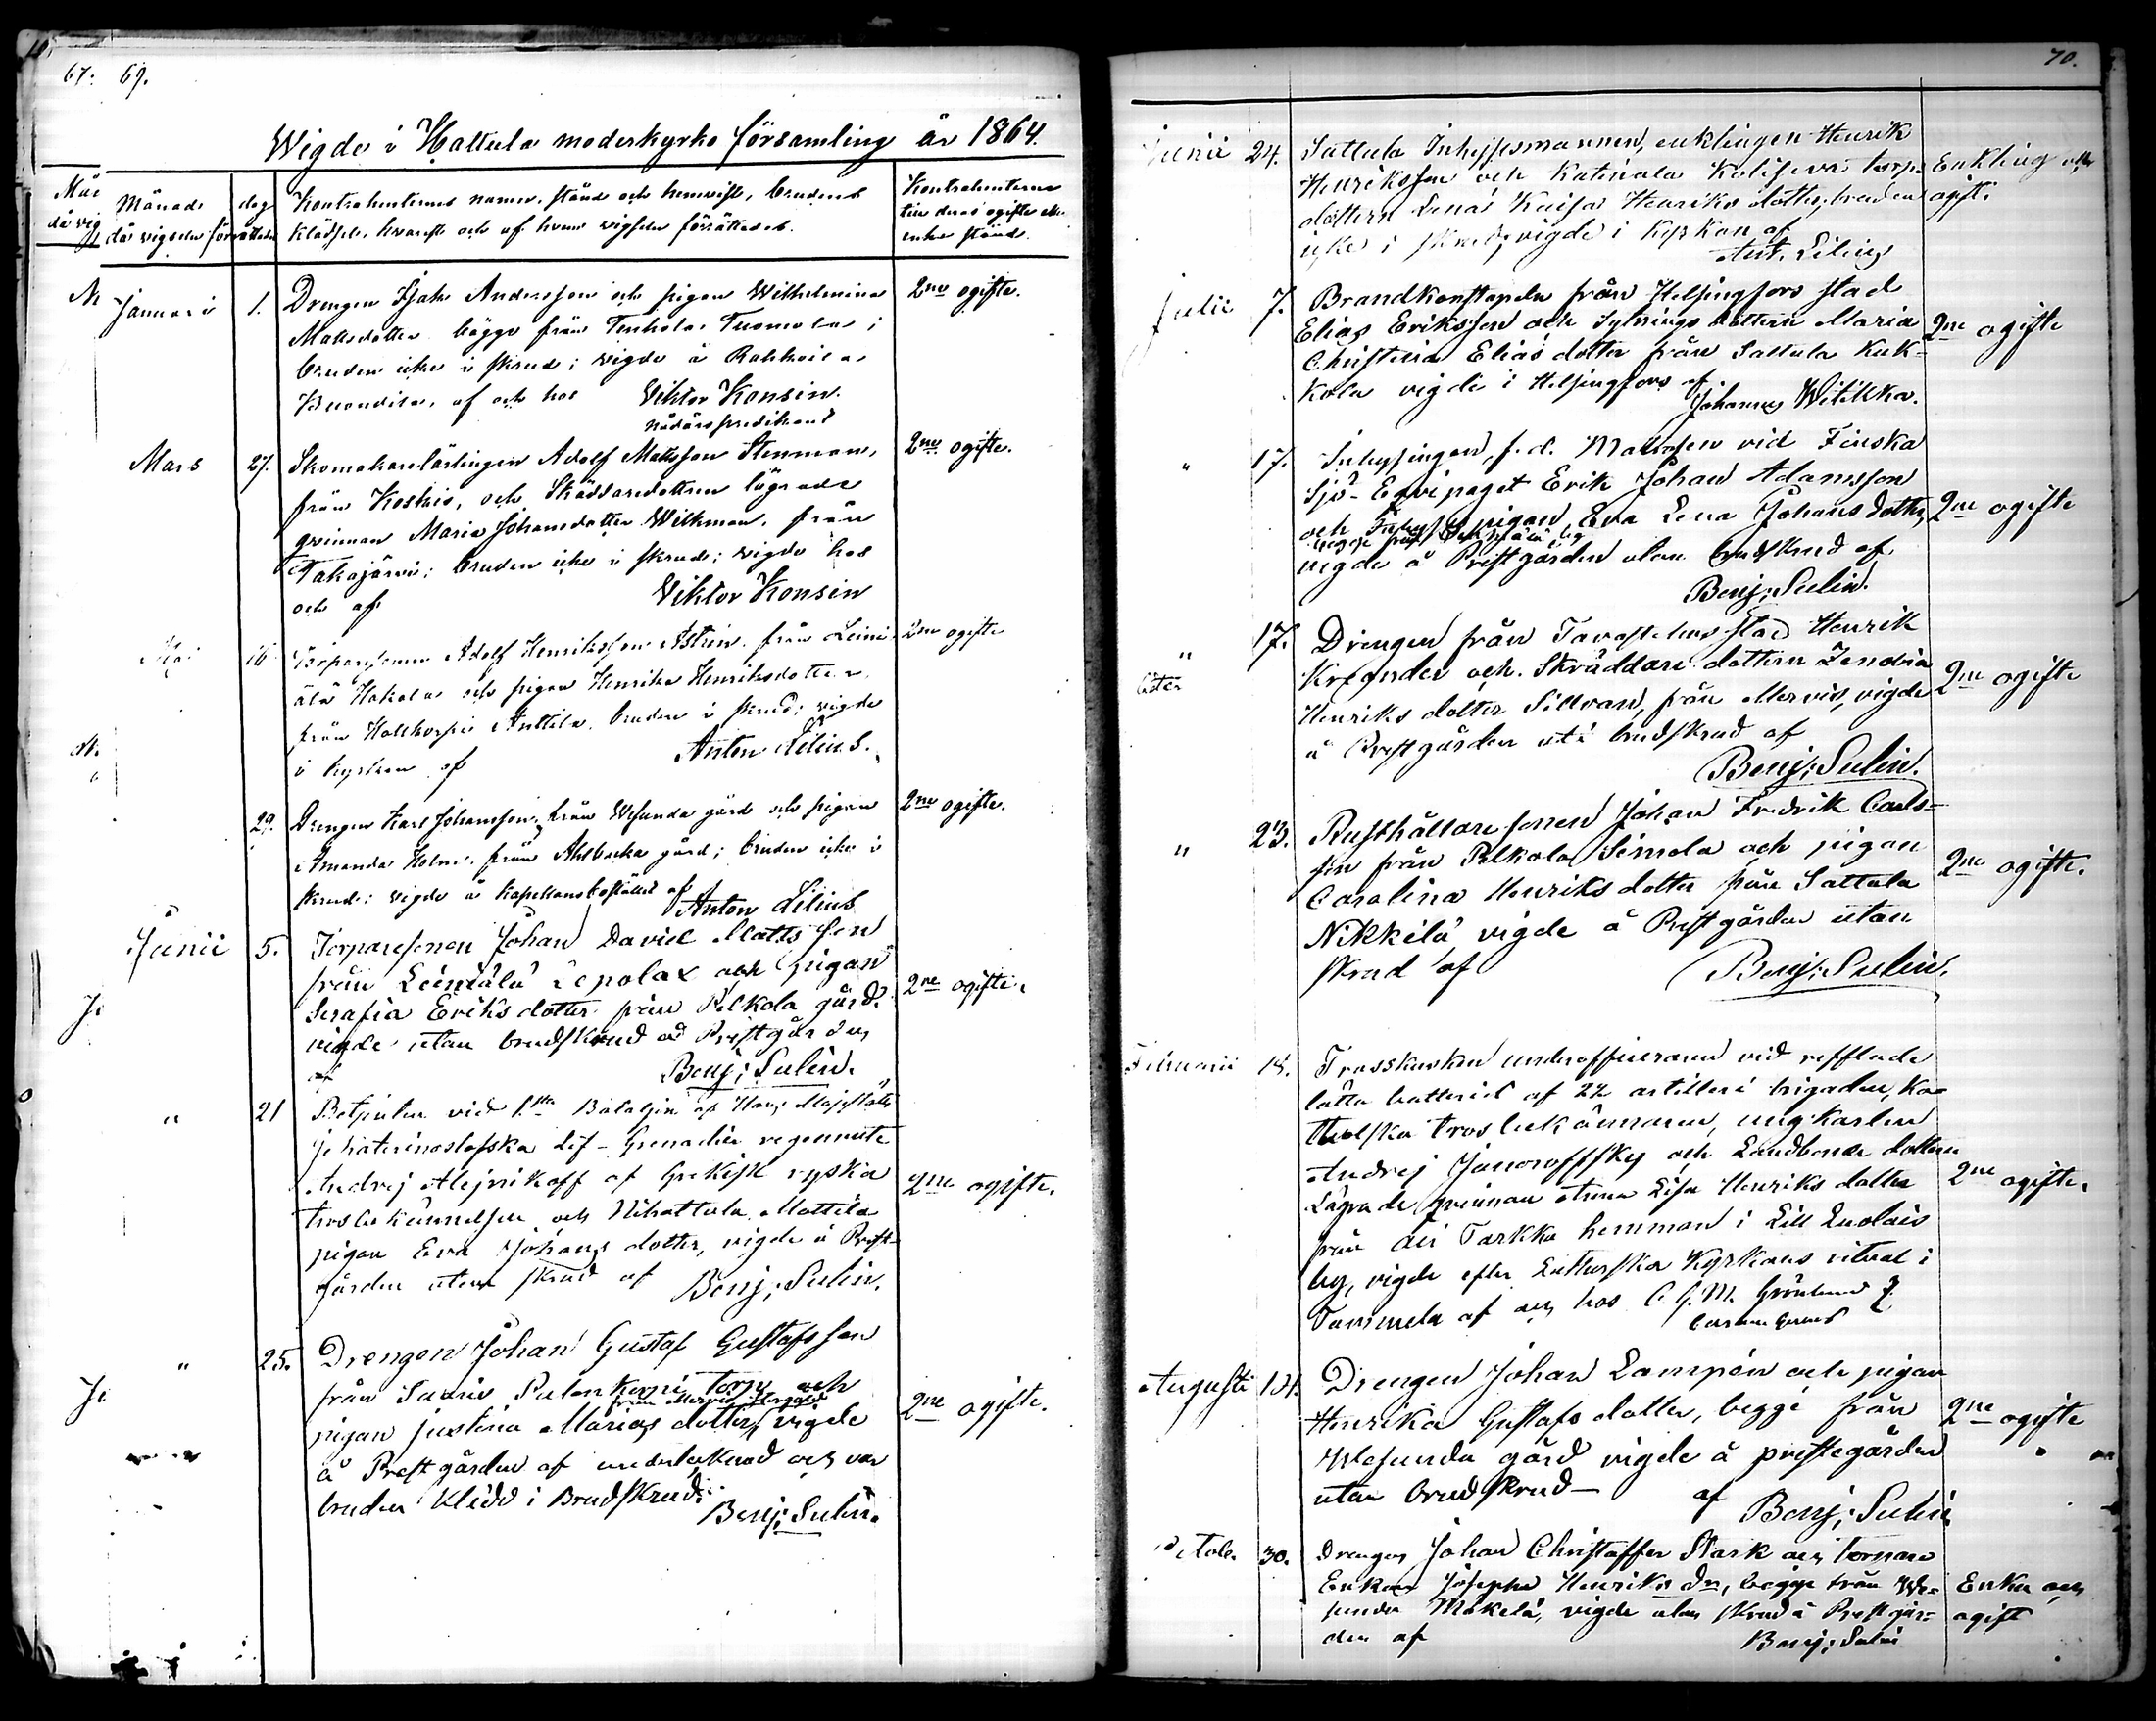 67. 69.
Wigde i Hattula moderkyrko församling år 1864.
Månad dag
då vigseln förrättades
Kontrahenternes namn, stånd och hemvist, brudens
klädsel, hvarest och af hvem vigseln förrättades.
Kontrahenternes
deras ogifta eller
enke stånd.
Januari 1. Drengen Isak Andersson och pigan Wilhelmina 2ne ogifte.
Mattsdotter bägge från Tenhola Tuomola;
bruden icke i skrud; vigde å
af och hos Viktor Konsin.
nådårspredikant
Mars 27. Skomakarelärlingen Adolf Mattsson Stenman, 2ne ogifte.
från Koskis, och Skräddaredottren lägrade
qvinnan Maria Johansdotter Wikman, från
Takajärvi; bruden icke i skrud; vigde hos
och af Viktor Konsin
Maj 16 Torparesonen Adolf Henriksson Åström från Leini- 2ne ogifte
älä Hakola och pigan Henrika Henriksdotter
från Anttila, bruden i skrud; vigde
i kyrkan af Anton Lilius.
29. Drengen Karl Johansson, från Wesunda gård och pigan 2ne ogifte.
Amanda Holm från Ahlbacka gård; bruden icke i
skrud; vigde å kapellansbostället af
Anton Lilius
Junii 5. Torparesonen Johan David Mattsson
från Leiniälä Lepola och pigan
Serafia Eriksdotter från Pelkola gård. 2ne ogifte.
vigde utan brudskrud å Prestgården
af Benj: Sulin.
" 21 Betjenten vid 1sta Bataljon af Hans Majestäts
Jekaterinoslafska Lif-Grenadier regemente
Andrej Alejnikoff af Grekisk ryska 2ne ogifte.
trosbekännelsen och Nihattula Mattila
pigan Eva Johans dotter, vigde å Prest-
gården utan skrud af Benj: Sulin.
" 25. Drengen Johan Gustaf Gustafsson
från Suris torp och
från Mervis
pigan Justina Marias dotter, vigde 2ne ogifte.
å Prestgården af undertecknad och var
bruden klädd i Brudskrud.
Benj: Sulin.
70.
Junii 24. Sattula Inhysesmannen, enklingen Henrik
Henriksson och Katinala torp- Enkling och
dottern Lena Kaisa Henriks dotter, bruden ogift.
icke i skrud, vigde i kyrkan af
Ant. Lilius
Julii 7. Brandkonstapeln från Helsingfors stad
Elias Eriksson och Sytnings dottern Maria 2ne ogifte
Christina Elias dotter från Sattula Kuk-
kola vigde i Helsingfors af
Johannes Witikka.
" 17. Inhysingen, f. d. Matrosen vid Finska
Sjö-Equipaget Erik Johan Adamsson
och Inhyses pigan Eva Lena Johans dotter, 2ne ogifte
begge från
vigde å Prestgården utan brudskrud af
Benj: Sulin.
" 17. Drengen från Tavastehus stad Henrik
Krönder och Skräddare dottern Zenobia 2ne ogifte
Henriks dotter Sillvan, från Mervis, vigde
å Prestgården uti brudskrud af
Benj: Sulin.
" 23. Rusthållare sonen Johan Fredrik Carls-
son från Pelkola Simola och pigan 2ne ogifte.
Carolina Henriks dotter från Sattula
Nikkilä, vigde å Prestgården utan
skrud af Benj: Sulin.
Februarii 18. Trosskusken underofficeraren vid refflade
lätta batteriet af 22 artilleri brigaden, ka-
tholska trosbekännaren, ungkarlen
Andrej och Landbonde dottern 2ne ogifte.
Lägrade qvinnan Anna Lisa Henriks dotter
från Äi Tarkka hemman i Lill Luolais
by, vigde efter Lutherska Kyrkans ritual i
Tammela af och hos C. G. M. Grönlund
Augusti 14. Drengen Johan Lampén och pigan
Henrika Gustafs dotter, begge från 2ne ogifte
Wesunda gård vigde å prestegården
utan brudskrud— af
Benj: Sulin
Octob. 30. Drengen Johan Christoffer Stark och torpare
Enkan Josepha Henriks dr, begge från We- Enka och
sunda Mäkelä, vigde utan skrud å Prestgår- ogift
den af Benj: Sulin